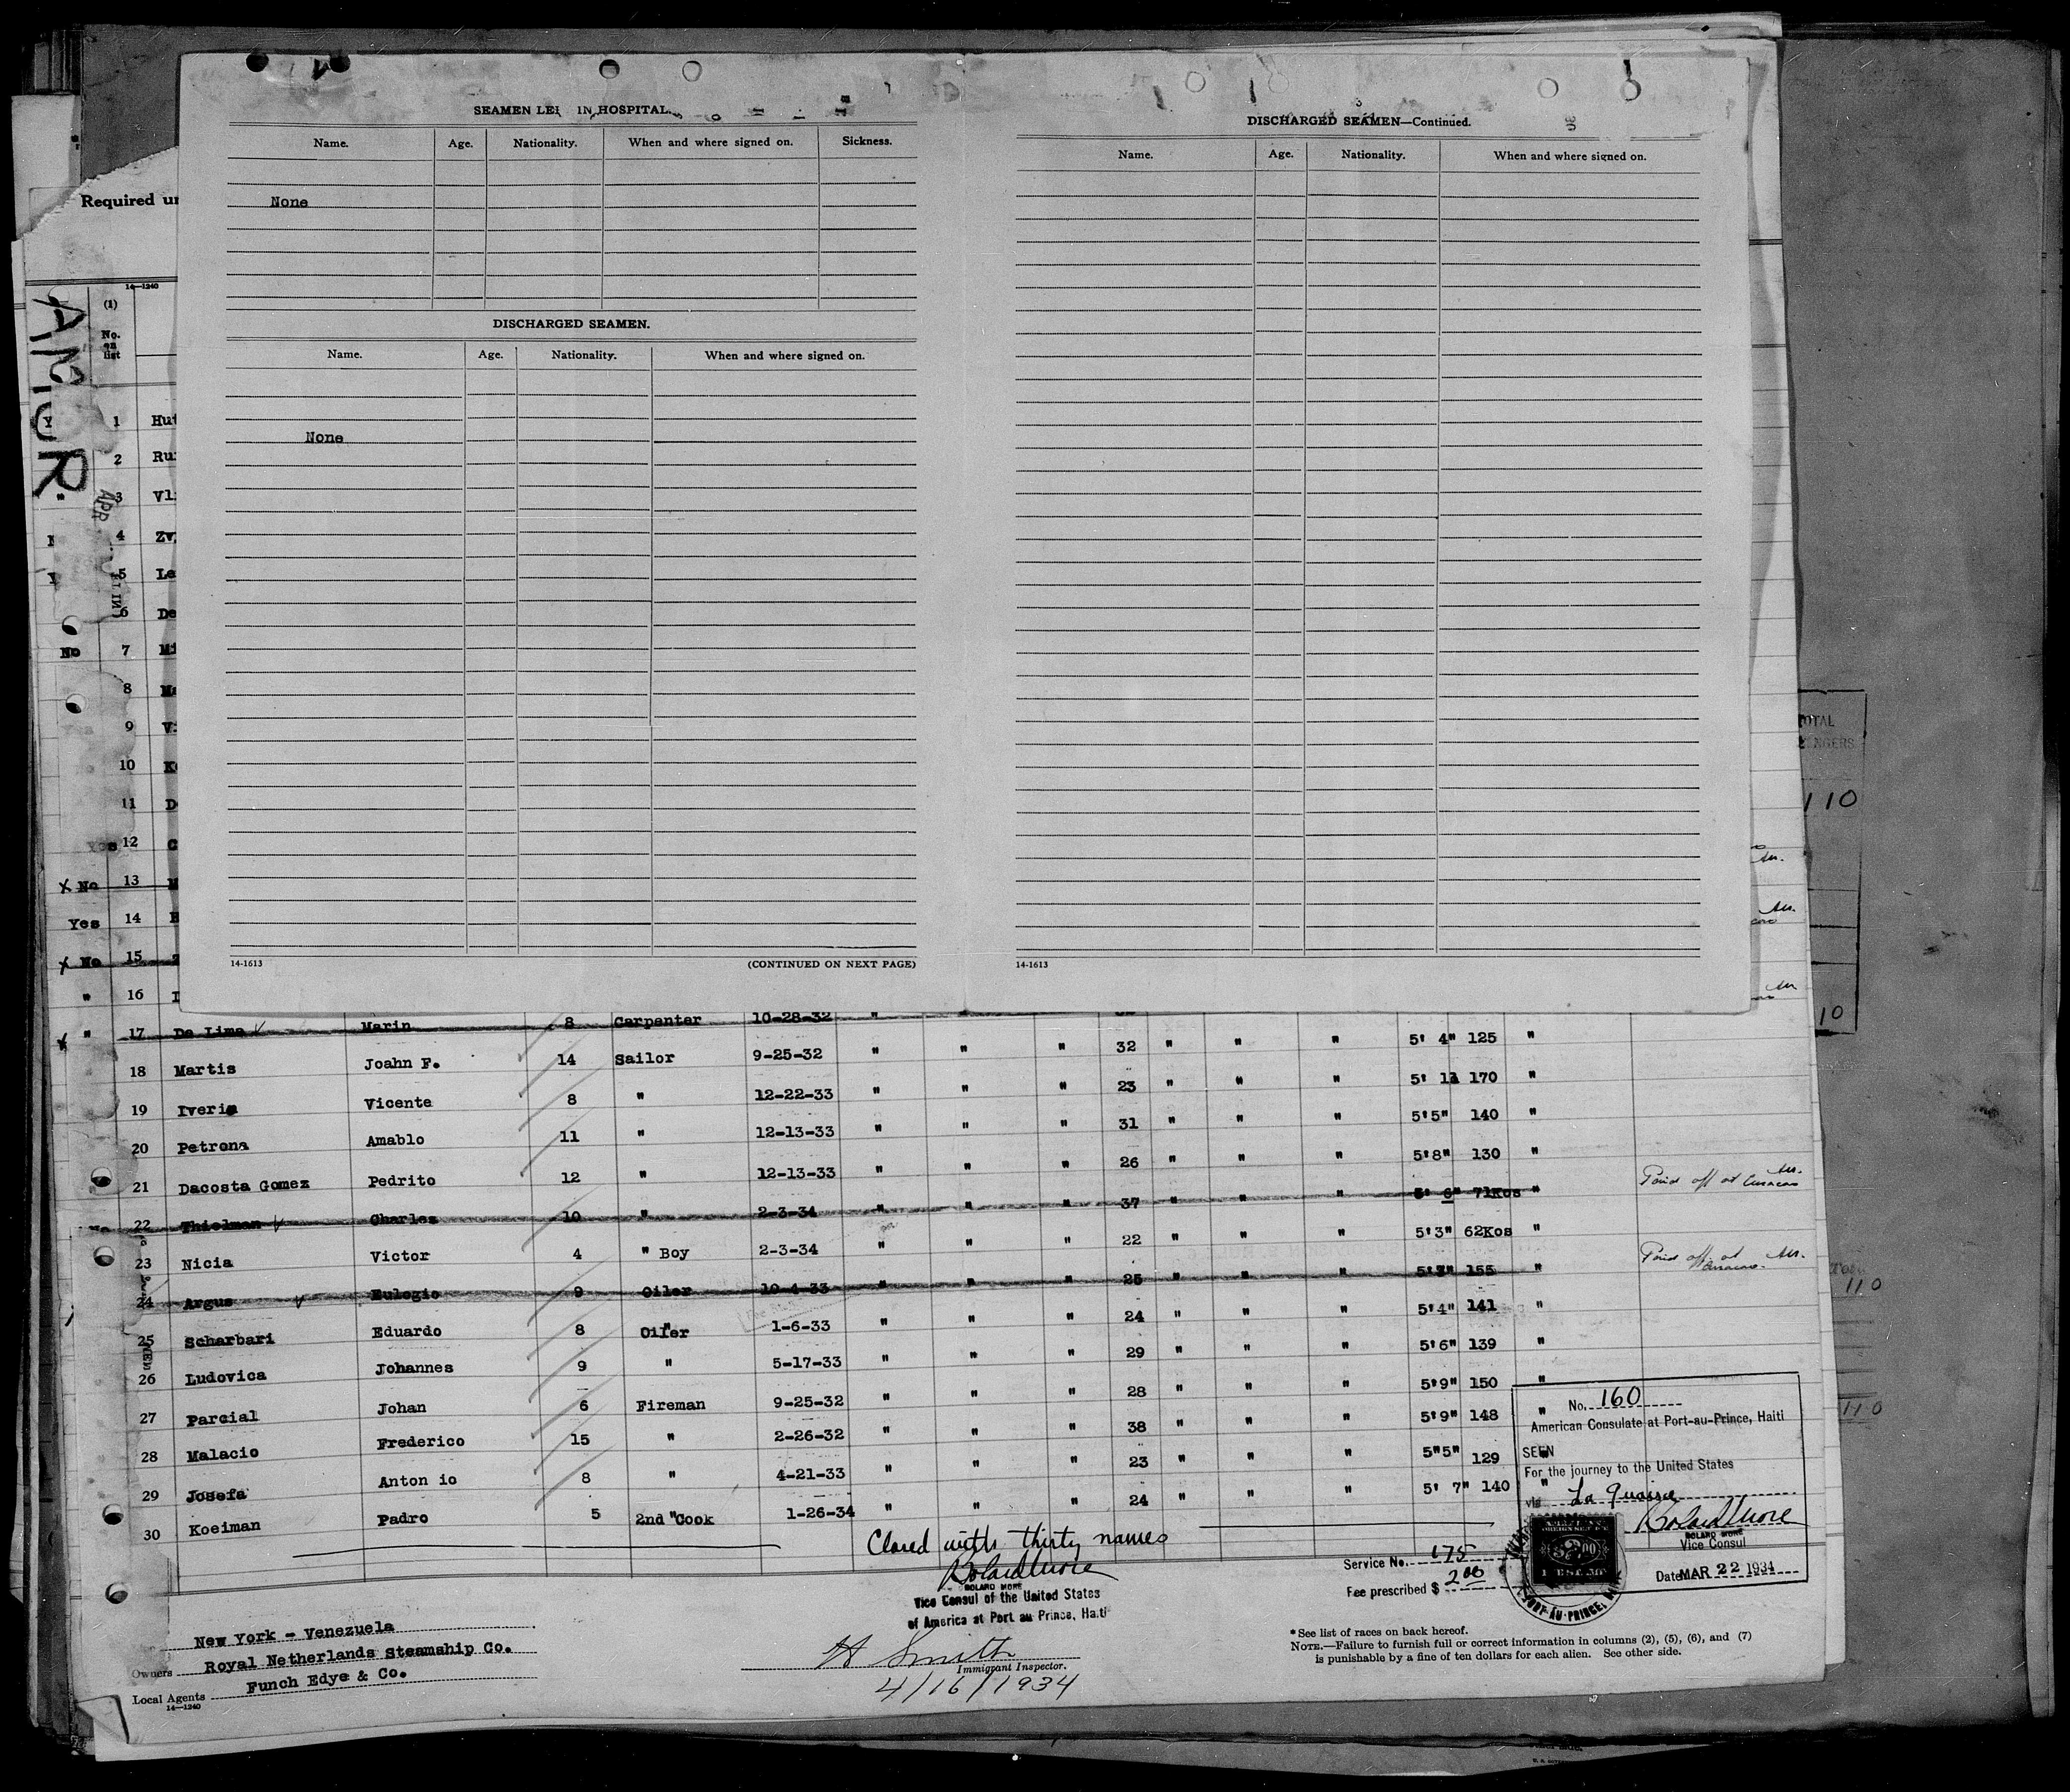 SEAMEN LE IN HOSPITAL.
Name. Age. Nationality. When and where signed on. Sickness.
None
DISCHARGED SEAMEN.
Name. Age. Nationality. When and where signed on.
None
14-1613 (CONTINUED ON NEXT PAGE)
DISCHARGED SEAMEN—Continued.
Name. Age. Nationality. When and where signed on.
14-1613
Required un
14—1240
(1)
No. on list
AMOR
APR
1 Hut
2 Rui
3 Vli
4 Zv
5 Le
6 De
No 7 Mi
8 M
9 Vi
10 K
11 D
Yes 12 C
x No 13 M
Yes 14 H
x No 15
" 16 I
x " 17 De Lima ✓ Marin 8 Carpenter 10-28-32 "
18 Martis Joahn F. 14 Sailor 9-25-32 " " " 32 " " " 5' 4" 125 "
19 Iveria Vicente 8 " 12-22-33 " " " 23 " " " 5' 170 "
20 Petrona Amablo 11 " 12-13-33 " " " 31 " " " 5'5" 140 "
21 Dacosta Gomez Pedrito 12 " 12-13-33 " " " 26 " " " 5'8" 130 "
22 Thielman ✓ Charles 10 " 2-3-34 " " " 37 " " " 5' 6" 71Kos " Paid off at Curacao
23 Nicia Victor 4 " Boy 2-3-34 " " " 22 " " " 5'3" 62Kos "
24 Argus ✓ Eulogio 9 Oiler 10-4-33 " " " 25 " " " 5'3" 155 " Paid off at Curacao.
25 Scharbari Eduardo 8 Oiler 1-6-33 " " " 24 " " " 5'4" 141 "
26 Ludovica Johannes 9 " 5-17-33 " " " 29 " " " 5'6" 139 "
27 Parcial Johan 6 Fireman 9-25-32 " " " 28 " " " 5'9" 150 "
28 Malacio Frederico 15 " 2-26-32 " " " 38 " " " 5'9" 148 "
29 Josefa Anton io 8 " 4-21-33 " " " 23 " " " 5"5" 129 "
30 Koeiman Padro 5 2nd "Cook 1-26-34 " " " 24 " " " 5' 7" 140 "
Closed with thirty names
Roland More
ROLAND MORE
Vice Consul of the United States
of America at Port au Prince, Haiti
H Smith
Immigrant Inspector.
4/16/1934
New York - Venezuela
Owners Royal Netherlands Steamship Co.
Local Agents Funch Edye & Co.
14—1240
No. 160
American Consulate at Port-au-Prince, Haiti
SEEN
For the journey to the United States
via La Guaira
Roland More
ROLAND MORE
Vice Consul
Date MAR 22 1934
Service No. 175
Fee prescribed $ 2 00
PORT-AU-PRINCE,
*See list of races on back hereof.
NOTE.—Failure to furnish full or correct information in columns (2), (5), (6), and (7)
is punishable by a fine of ten dollars for each alien. See other side.
OTAL
NGERS
110
10
110
110